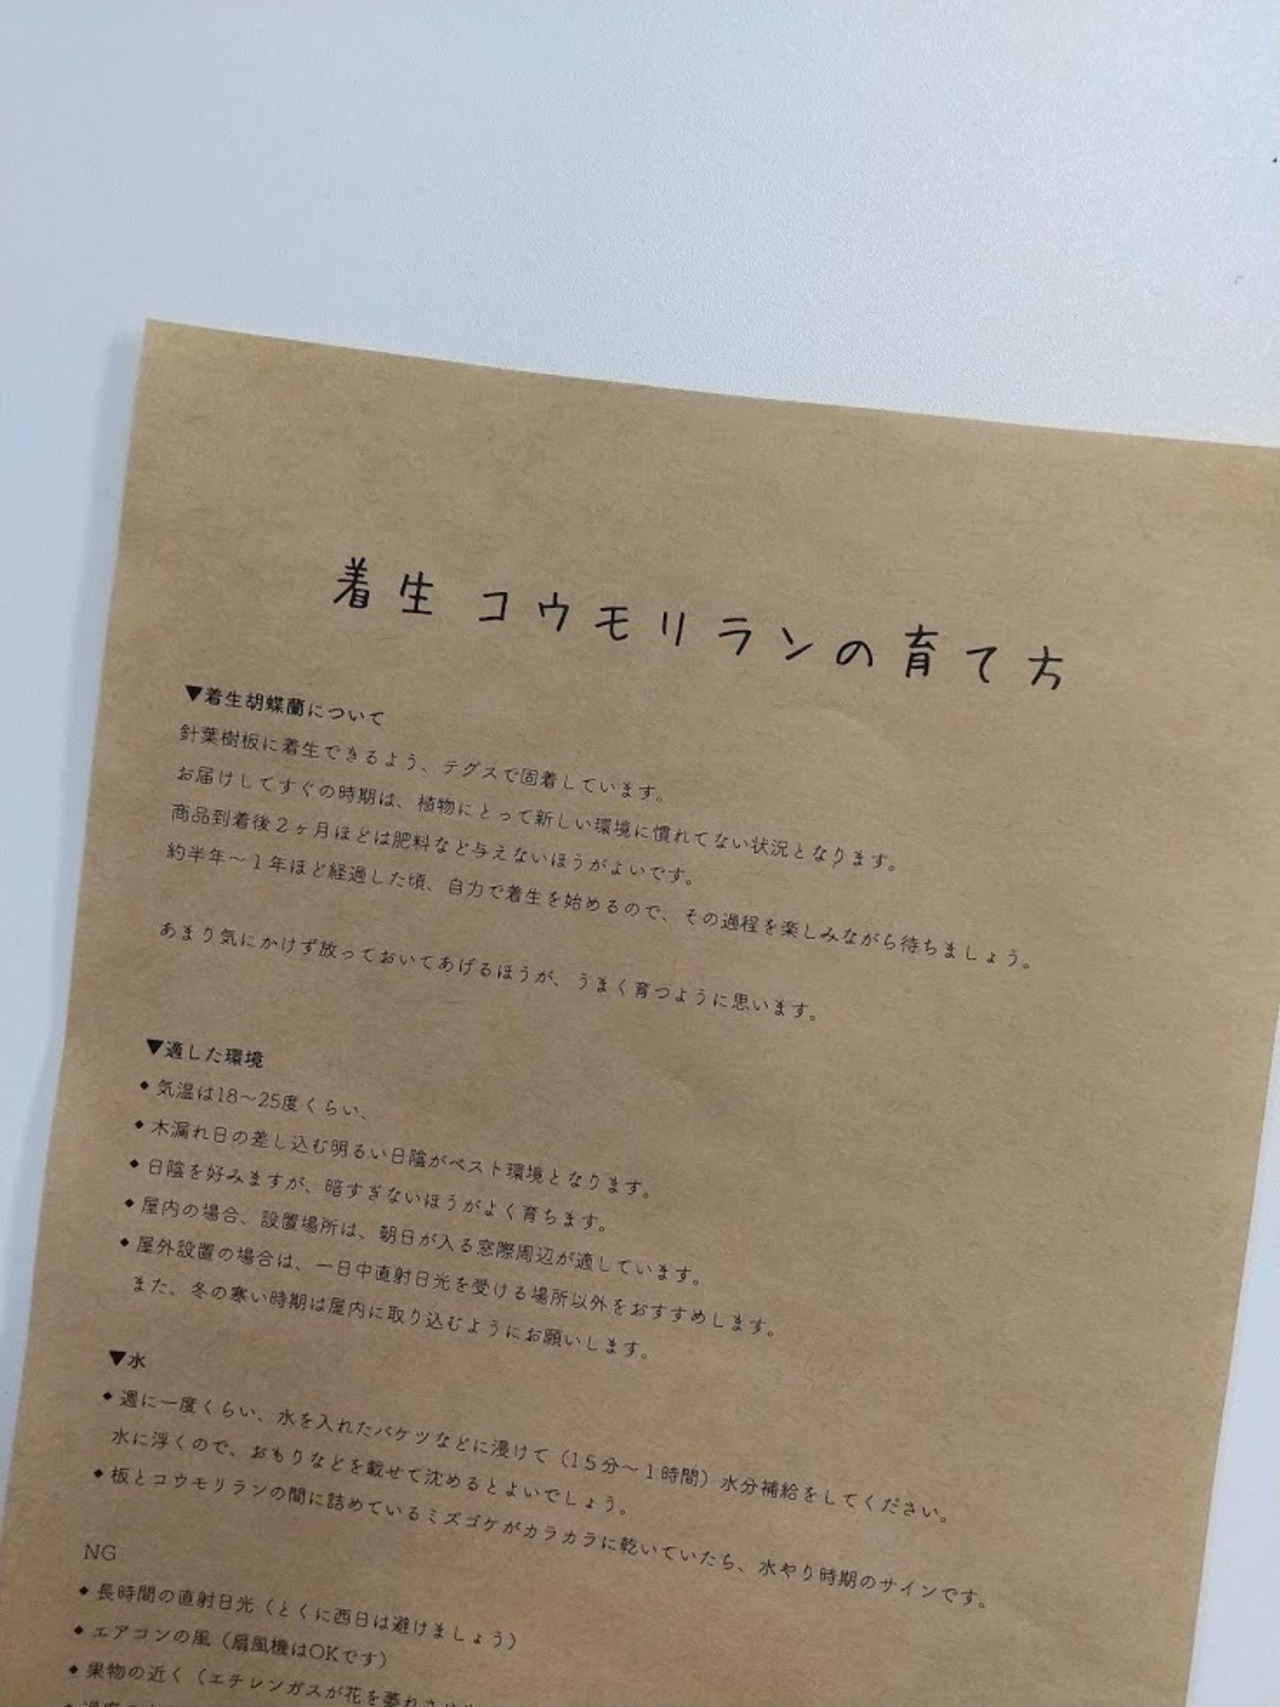 着生 コウモリランの育て方
▼着生胡蝶蘭について
針葉樹板に着生できるよう、テグスで固着しています。
お届けしてすぐの時期は、植物にとって新しい環境に慣れてない状況となります。
商品到着後２ヶ月ほどは肥料など与えないほうがよいです。
約半年～１年ほど経過した頃、自力で着生を始めるので、その過程を楽しみながら待ちましょう。
あまり気にかけず放っておいてあげるほうが、うまく育つように思います。
▼適した環境
◆気温は18～25度くらい、
◆木漏れ日の差し込む明るい日陰がベスト環境となります。
◆日陰を好みますが、暗すぎないほうがよく育ちます。
◆屋内の場合、設置場所は、朝日が入る窓際周辺が適しています。
◆屋外設置の場合は、一日中直射日光を受ける場所以外をおすすめします。
また、冬の寒い時期は屋内に取り込むようにお願いします。
▼水
◆週に一度くらい、水を入れたバケツなどに浸けて（１５分～１時間）水分補給をしてください。
水に浮くので、おもりなどを載せて沈めるとよいでしょう。
◆板とコウモリランの間に詰めているミズゴケがカラカラに乾いていたら、水やり時期のサインです。
NG
◆長時間の直射日光（とくに西日は避けましょう）
◆エアコンの風（扇風機はOKです）
◆果物の近く（エチレンガスが花を萎れさせ